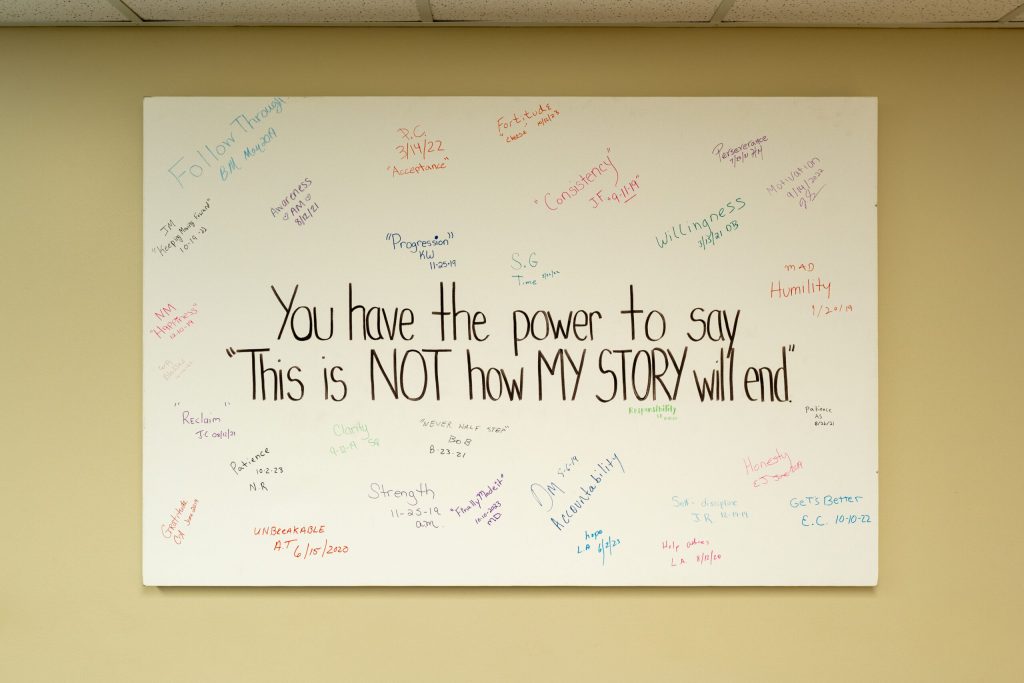 Follow Through
BM May 2019
P.C.
3/14/22
"Acceptance"
Fortitude
"Cheese"
Perseverance
Motivation
9/14/2022
"Consistency"
J.F. 9-11-19
Awareness
AM
8/12/21
JM
"Keeping Moving Forward"
10-19-21
"Progression"
KW
11-25-19
S.G
Time
Willingness
3/13/21 OB
MAD
Humility
1/20/19
NM
"Happiness"
12-10-19
You have the power to say
"This is NOT how MY STORY will end."
"Reclaim"
J.C 05/12/21
Clarity
9-12-19 SR
"NEVER HALF STEP"
BoB
8-23-21
Responsibility
Patience
AS
8/26/21
Patience
10-2-23
N.R
Strength
11-25-19
am.
"Finally Made it"
10-10-2023
M.D.
DM 5-6-19
Accountability
Honesty
EJ June 2019
Self-discipline
J.R. 12-19-19
GeTs BetTer
E.C. 10-10-22
Gratitude
June 2019
UNBREAKABLE
A.T 6/15/2020
hope
LA 6/2/23
Help others
LA 8/12/20